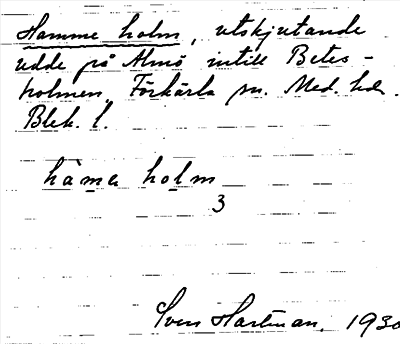 Hamme holm, utskjutande
udde på Almö intill Betes-
holmen, Förkärla sn. Med. hd.
Blek. l.
hàma holm
3
Sven Hartman, 1930